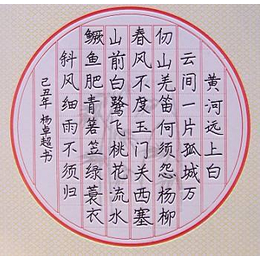 黄河远上白
云间一片孤城万
仞山羌笛何须怨杨柳
春风不度玉门关西塞
山前白鹭飞桃花流水
鳜鱼肥青箬笠绿蓑衣
斜风细雨不须归
己丑年 杨卓超书